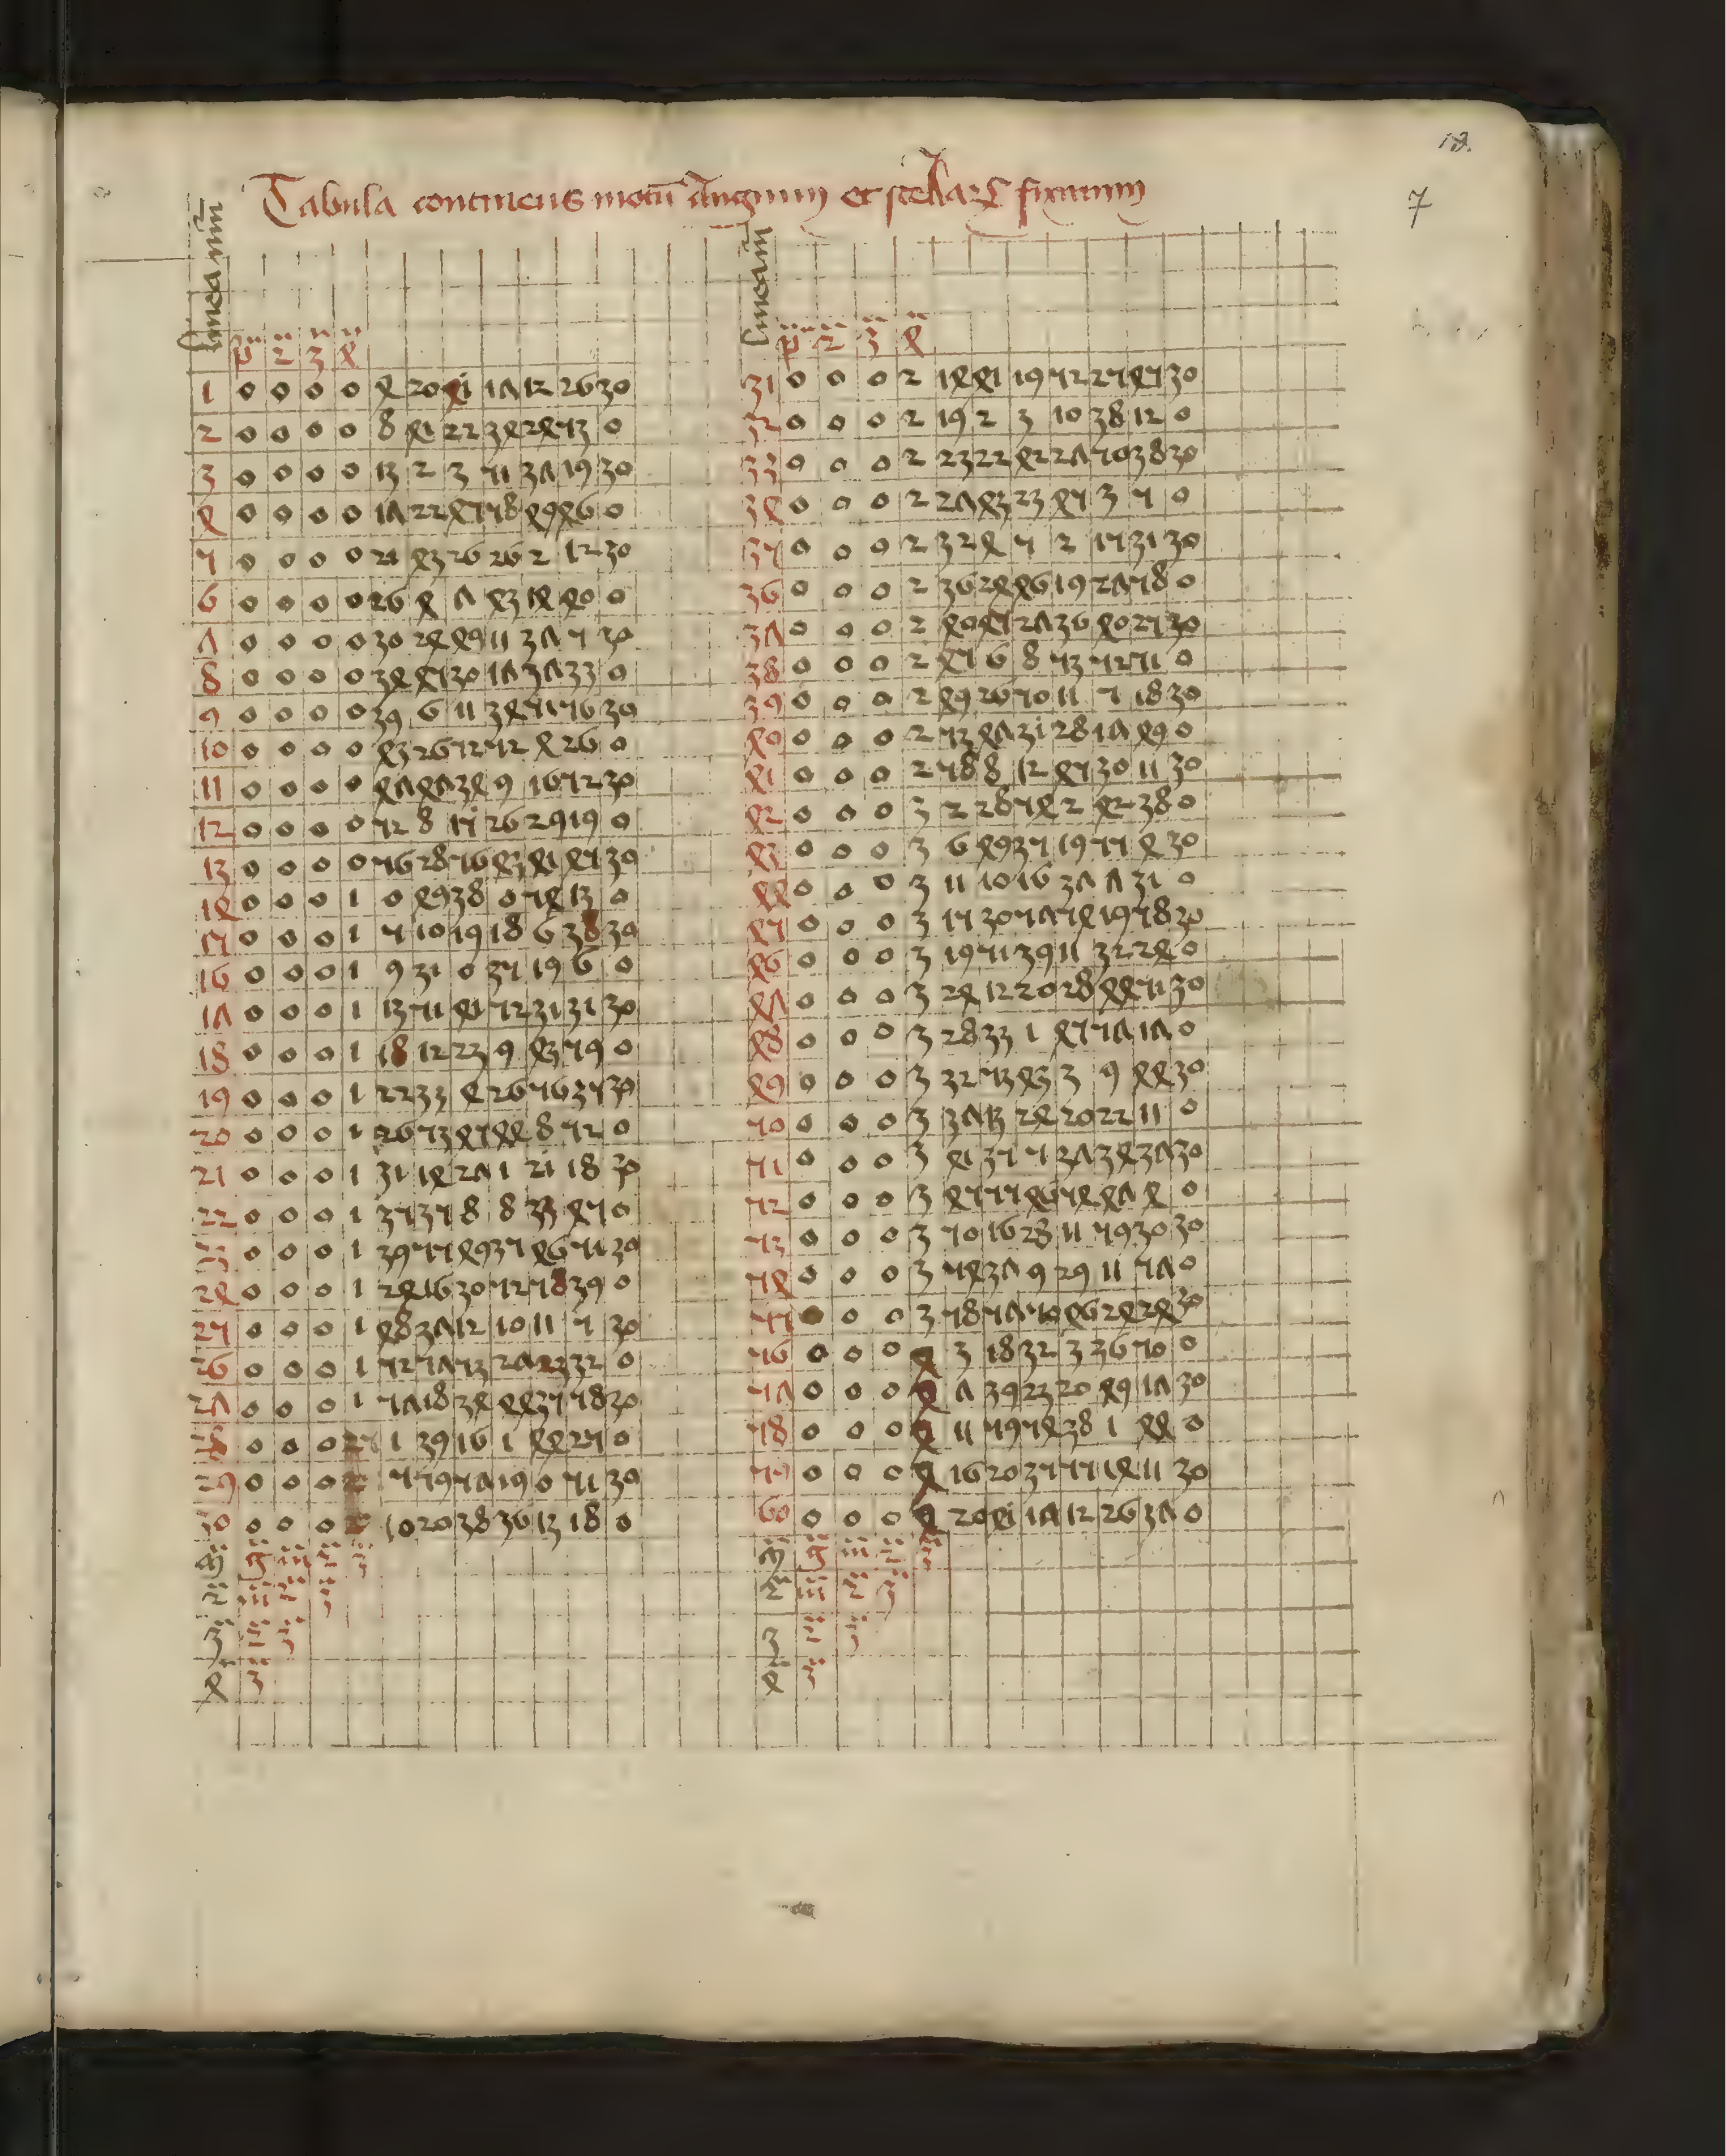 18.
7
Tabula continens motū augium et stellarꝝ fixarum
linea nū
p̄ 2 3 4
1 0 0 0 0 4 20 41 17 12 26 30
2 0 0 0 0 8 41 22 34 24 53 0
3 0 0 0 0 13 2 3 51 37 19 30
4 0 0 0 0 17 22 45 58 49 46 0
5 0 0 0 0 21 43 26 26 2 12 30
6 0 0 0 0 26 4 7 43 14 40 0
7 0 0 0 0 30 24 49 11 37 5 30
8 0 0 0 0 34 45 30 17 37 33 0
9 0 0 0 0 39 6 11 34 51 56 30
10 0 0 0 0 43 26 52 52 4 26 0
11 0 0 0 0 47 47 34 9 16 52 30
12 0 0 0 0 52 8 15 26 29 19 0
13 0 0 0 0 56 28 56 43 41 45 30
14 0 0 0 1 0 49 38 0 54 13 0
15 0 0 0 1 5 10 19 18 6 38 30
16 0 0 0 1 9 31 0 35 19 6 0
17 0 0 0 1 13 51 41 52 31 31 30
18 0 0 0 1 18 12 23 9 43 59 0
19 0 0 0 1 22 33 4 26 56 35 30
20 0 0 0 1 26 53 45 44 8 52 0
21 0 0 0 1 31 14 27 1 21 18 30
22 0 0 0 1 35 35 8 8 33 45 0
23 0 0 0 1 39 55 49 35 46 51 30
24 0 0 0 1 24 16 30 52 58 39 0
25 0 0 0 1 48 37 12 10 11 5 30
26 0 0 0 1 52 57 53 27 23 32 0
27 0 0 0 1 57 18 34 44 35 58 30
28 0 0 0 2 1 39 16 1 44 25 0
29 0 0 0 2 5 59 57 19 0 51 30
30 0 0 0 2 10 20 38 36 13 18 0
m̄ g m̄ 2 3
2 m̄ 2 3
3 2 3
4 3
linea nū
p̄ 2 3 4
31 0 0 0 2 14 41 19 52 25 45 30
32 0 0 0 2 19 2 3 10 38 12 0
33 0 0 0 2 23 22 42 27 50 38 30
34 0 0 0 2 27 43 23 45 3 5 0
35 0 0 0 2 32 4 5 2 15 31 30
36 0 0 0 2 36 24 46 19 27 58 0
37 0 0 0 2 40 45 27 36 40 25 30
38 0 0 0 2 45 6 8 53 52 51 0
39 0 0 0 2 49 26 50 11 5 18 30
40 0 0 0 2 53 47 31 28 17 49 0
41 0 0 0 2 58 8 12 45 30 11 30
42 0 0 0 3 2 28 54 2 42 38 0
43 0 0 0 3 6 49 35 19 55 4 30
44 0 0 0 3 11 10 16 37 7 31 0
45 0 0 0 3 15 30 57 54 19 58 30
46 0 0 0 3 19 51 39 11 32 24 0
47 0 0 0 3 24 12 20 28 44 51 30
48 0 0 0 3 28 33 1 45 57 17 0
49 0 0 0 3 32 53 43 3 9 44 30
50 0 0 0 3 37 13 24 20 22 11 0
51 0 0 0 3 41 35 5 37 34 37 30
52 0 0 0 3 45 55 46 54 47 4 0
53 0 0 0 3 50 16 28 11 59 30 30
54 0 0 0 3 54 37 9 29 11 57 0
55 0 0 0 3 58 57 50 46 24 24 30
56 0 0 0 4 3 18 32 3 36 50 0
57 0 0 0 4 7 39 23 20 49 17 30
58 0 0 0 4 11 59 54 38 1 44 0
59 0 0 0 4 16 20 35 55 14 11 30
60 0 0 0 4 20 41 17 12 26 37 0
m̄ g m̄ 2 3
2 m̄ 2 3
3 2 3
4 3